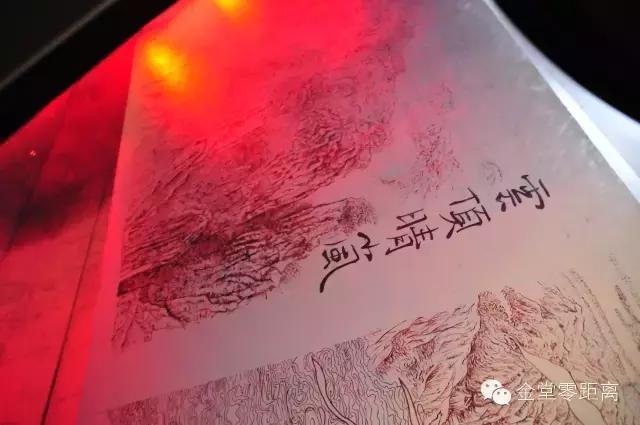 雲頂晴嵐
金堂零距离